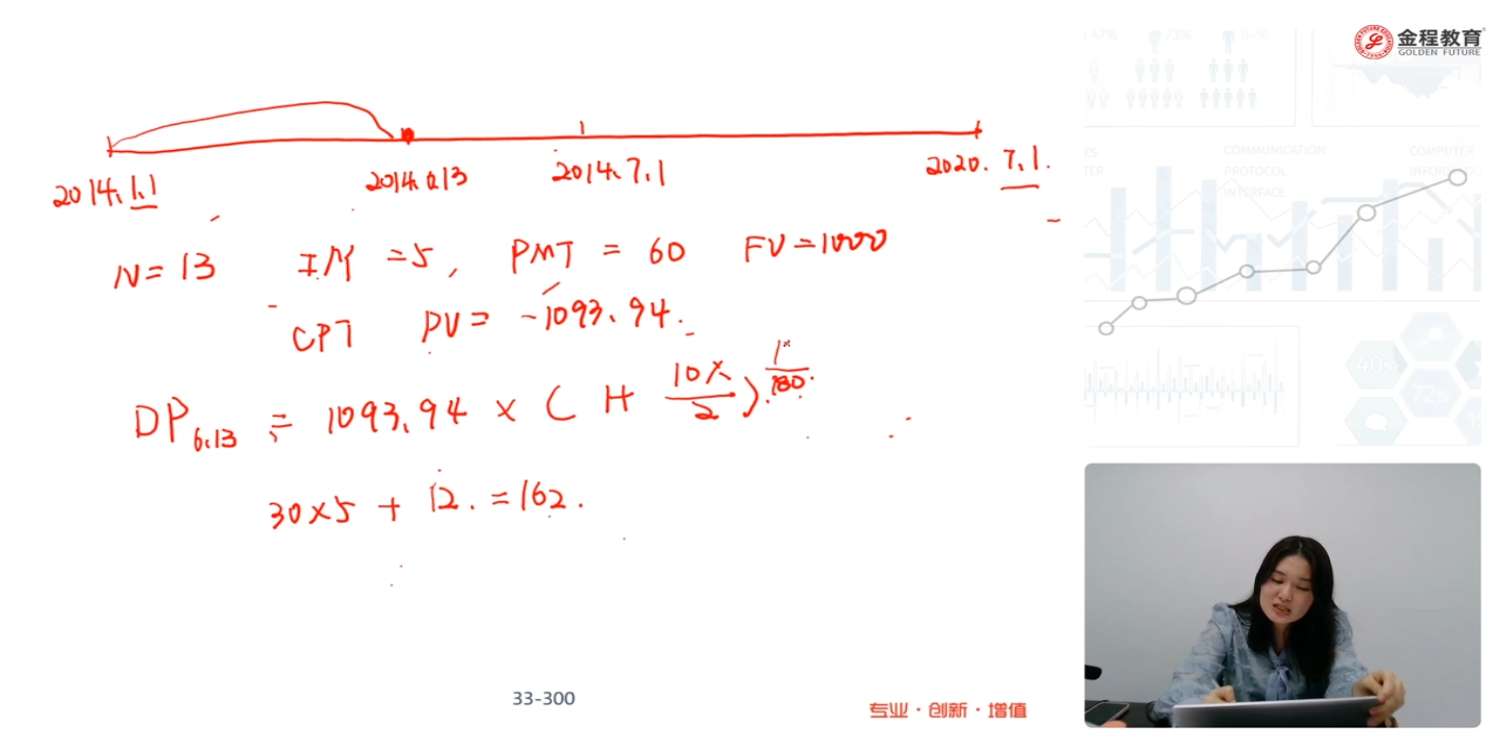 金程教育
GOLDEN FUTURE
COMMUNICATION
COMPUTER
PROTOCOL
INTERFACE
2014.1.1
2014.6.13
2014.7.1
2020.7.1.
N=13 I/Y =5, PMT = 60 FV=1000
CPT PV= -1093.94.
DP6.13 = 1093.94 × (1+ 10%/2)
180.
30×5 + 12. =162.
33-300
专业·创新·增值